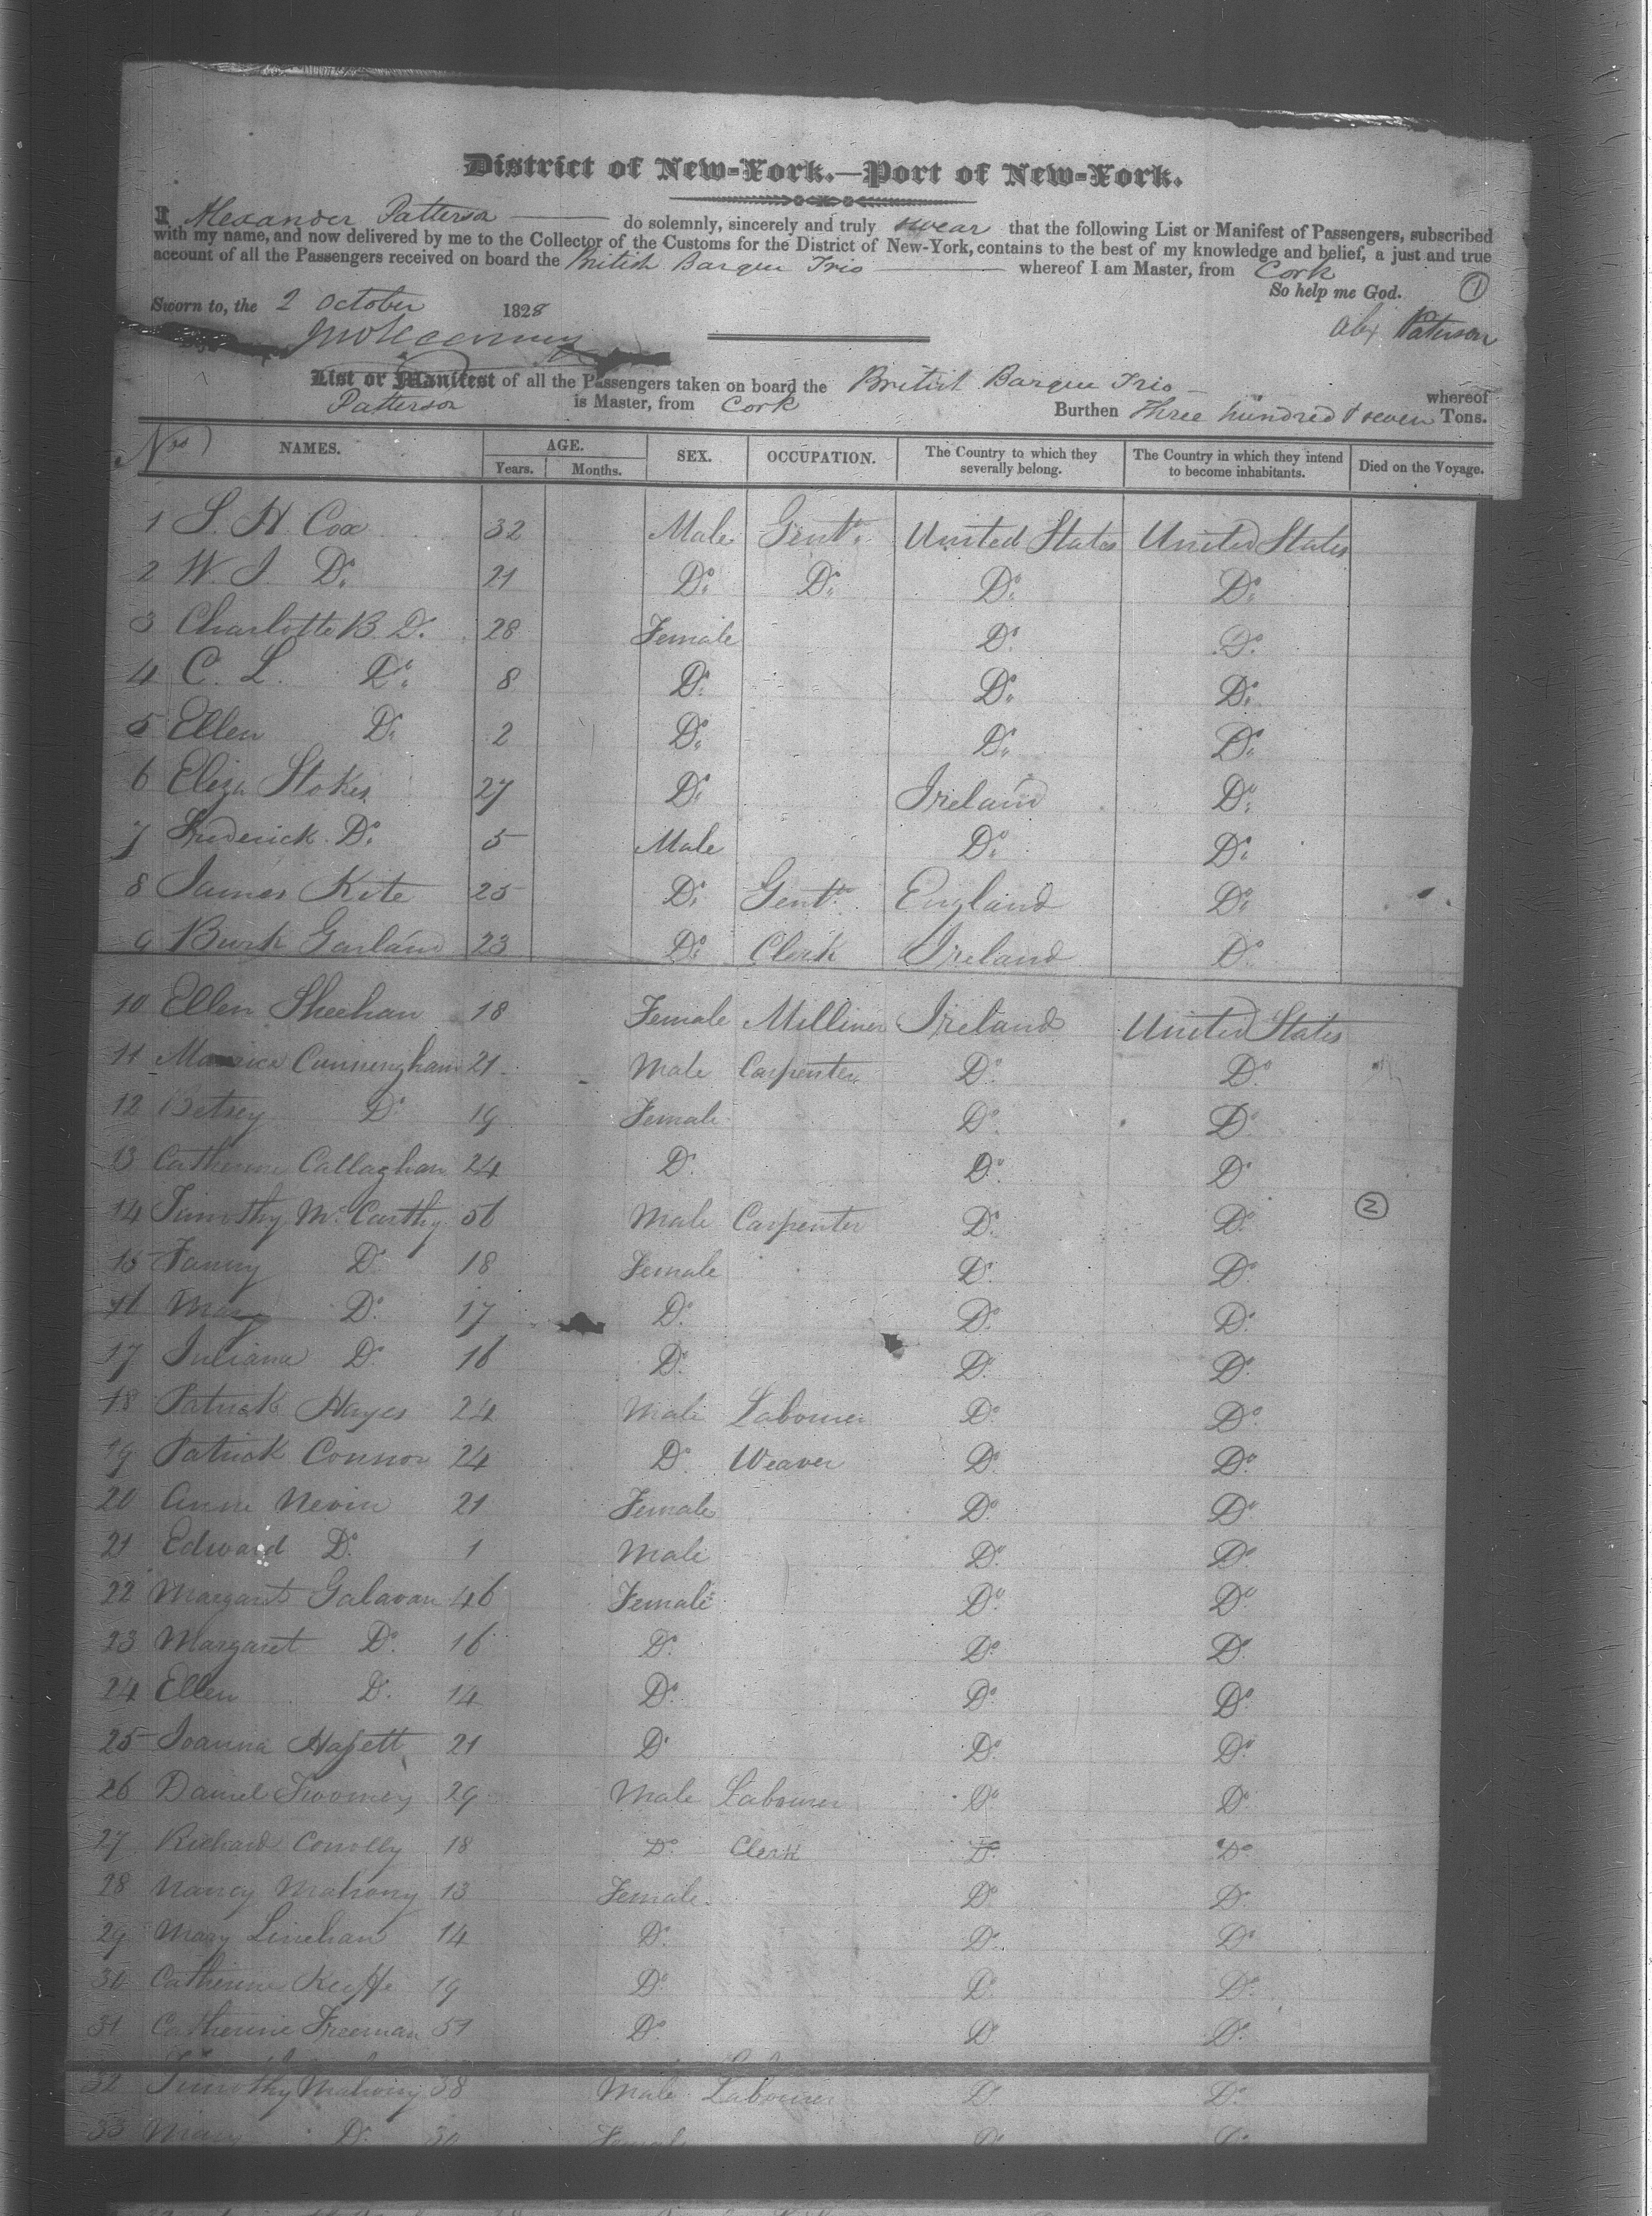 District of New-York.—Port of New-York.
I Alexander Patterson do solemnly, sincerely and truly swear that the following List or Manifest of Passengers, subscribed
with my name, and now delivered by me to the Collector of the Customs for the District of New-York, contains to the best of my knowledge and belief, a just and true
account of all the Passengers received on board the British Barque Trio whereof I am Master, from Cork
So help me God. 1
Sworn to, the 2 October 1828
Alex Paterson
List or Manifest of all the Passengers taken on board the British Barque Trio whereof
Patterson is Master, from Cork Burthen Three hundred & seven Tons.
Nos NAMES. AGE. Years. Months. SEX. OCCUPATION. The Country to which they severally belong. The Country in which they intend to become inhabitants. Died on the Voyage.
1 S. H. Cox 32 Male Gent. United States United States
2 W. J. Do. 21 Do. Do. Do. Do.
3 Charlotte B. Do. 28 Female Do. Do.
4 C. L. Do. 8 Do. Do. Do.
5 Ellen Do. 2 Do. Do. Do.
6 Eliza Stokes 27 Do. Ireland Do.
7 Frederick Do. 5 Male Do. Do.
8 James Kite 25 Do. Gent. England Do.
9 Garland 23 Do. Clerk Ireland Do.
10 Ellen Sheehan 18 Female Milliner Ireland United States
11 Maurice Cunningham 21 Male Carpenter Do. Do.
12 Betsey Do. 19 Female Do. Do.
13 Catherine Callaghan 24 Do. Do. Do.
14 Timothy Mc.Carthy 56 Male Carpenter Do. Do. 2
15 Fanny Do. 18 Female Do. Do.
16 Mary Do. 17 Do. Do. Do.
17 Juliana Do. 16 Do. Do. Do.
18 Patrick Hayes 24 Male Labourer Do. Do.
19 Patrick Connor 24 Do. Weaver Do. Do.
20 Anne Nevin 21 Female Do. Do.
21 Edward Do. 1 Male Do. Do.
22 Margaret Galavan 46 Female Do. Do.
23 Margaret Do. 16 Do. Do. Do.
24 Ellen Do. 14 Do. Do. Do.
25 Joanna 21 Do. Do. Do.
26 Daniel Twomey 29 Male Labourer Do. Do.
27 Richard Conolly 18 Do. Clerk Do. Do.
28 Nancy Mahony 13 Female Do. Do.
29 Mary Linehan 14 Do. Do. Do.
30 Catherine Keiffe 19 Do. Do. Do.
31 Catherine Freeman 51 Do. Do. Do.
32 Timothy Mahony 38 Male Labourer Do. Do.
33 Mary Do. Female Do. Do.